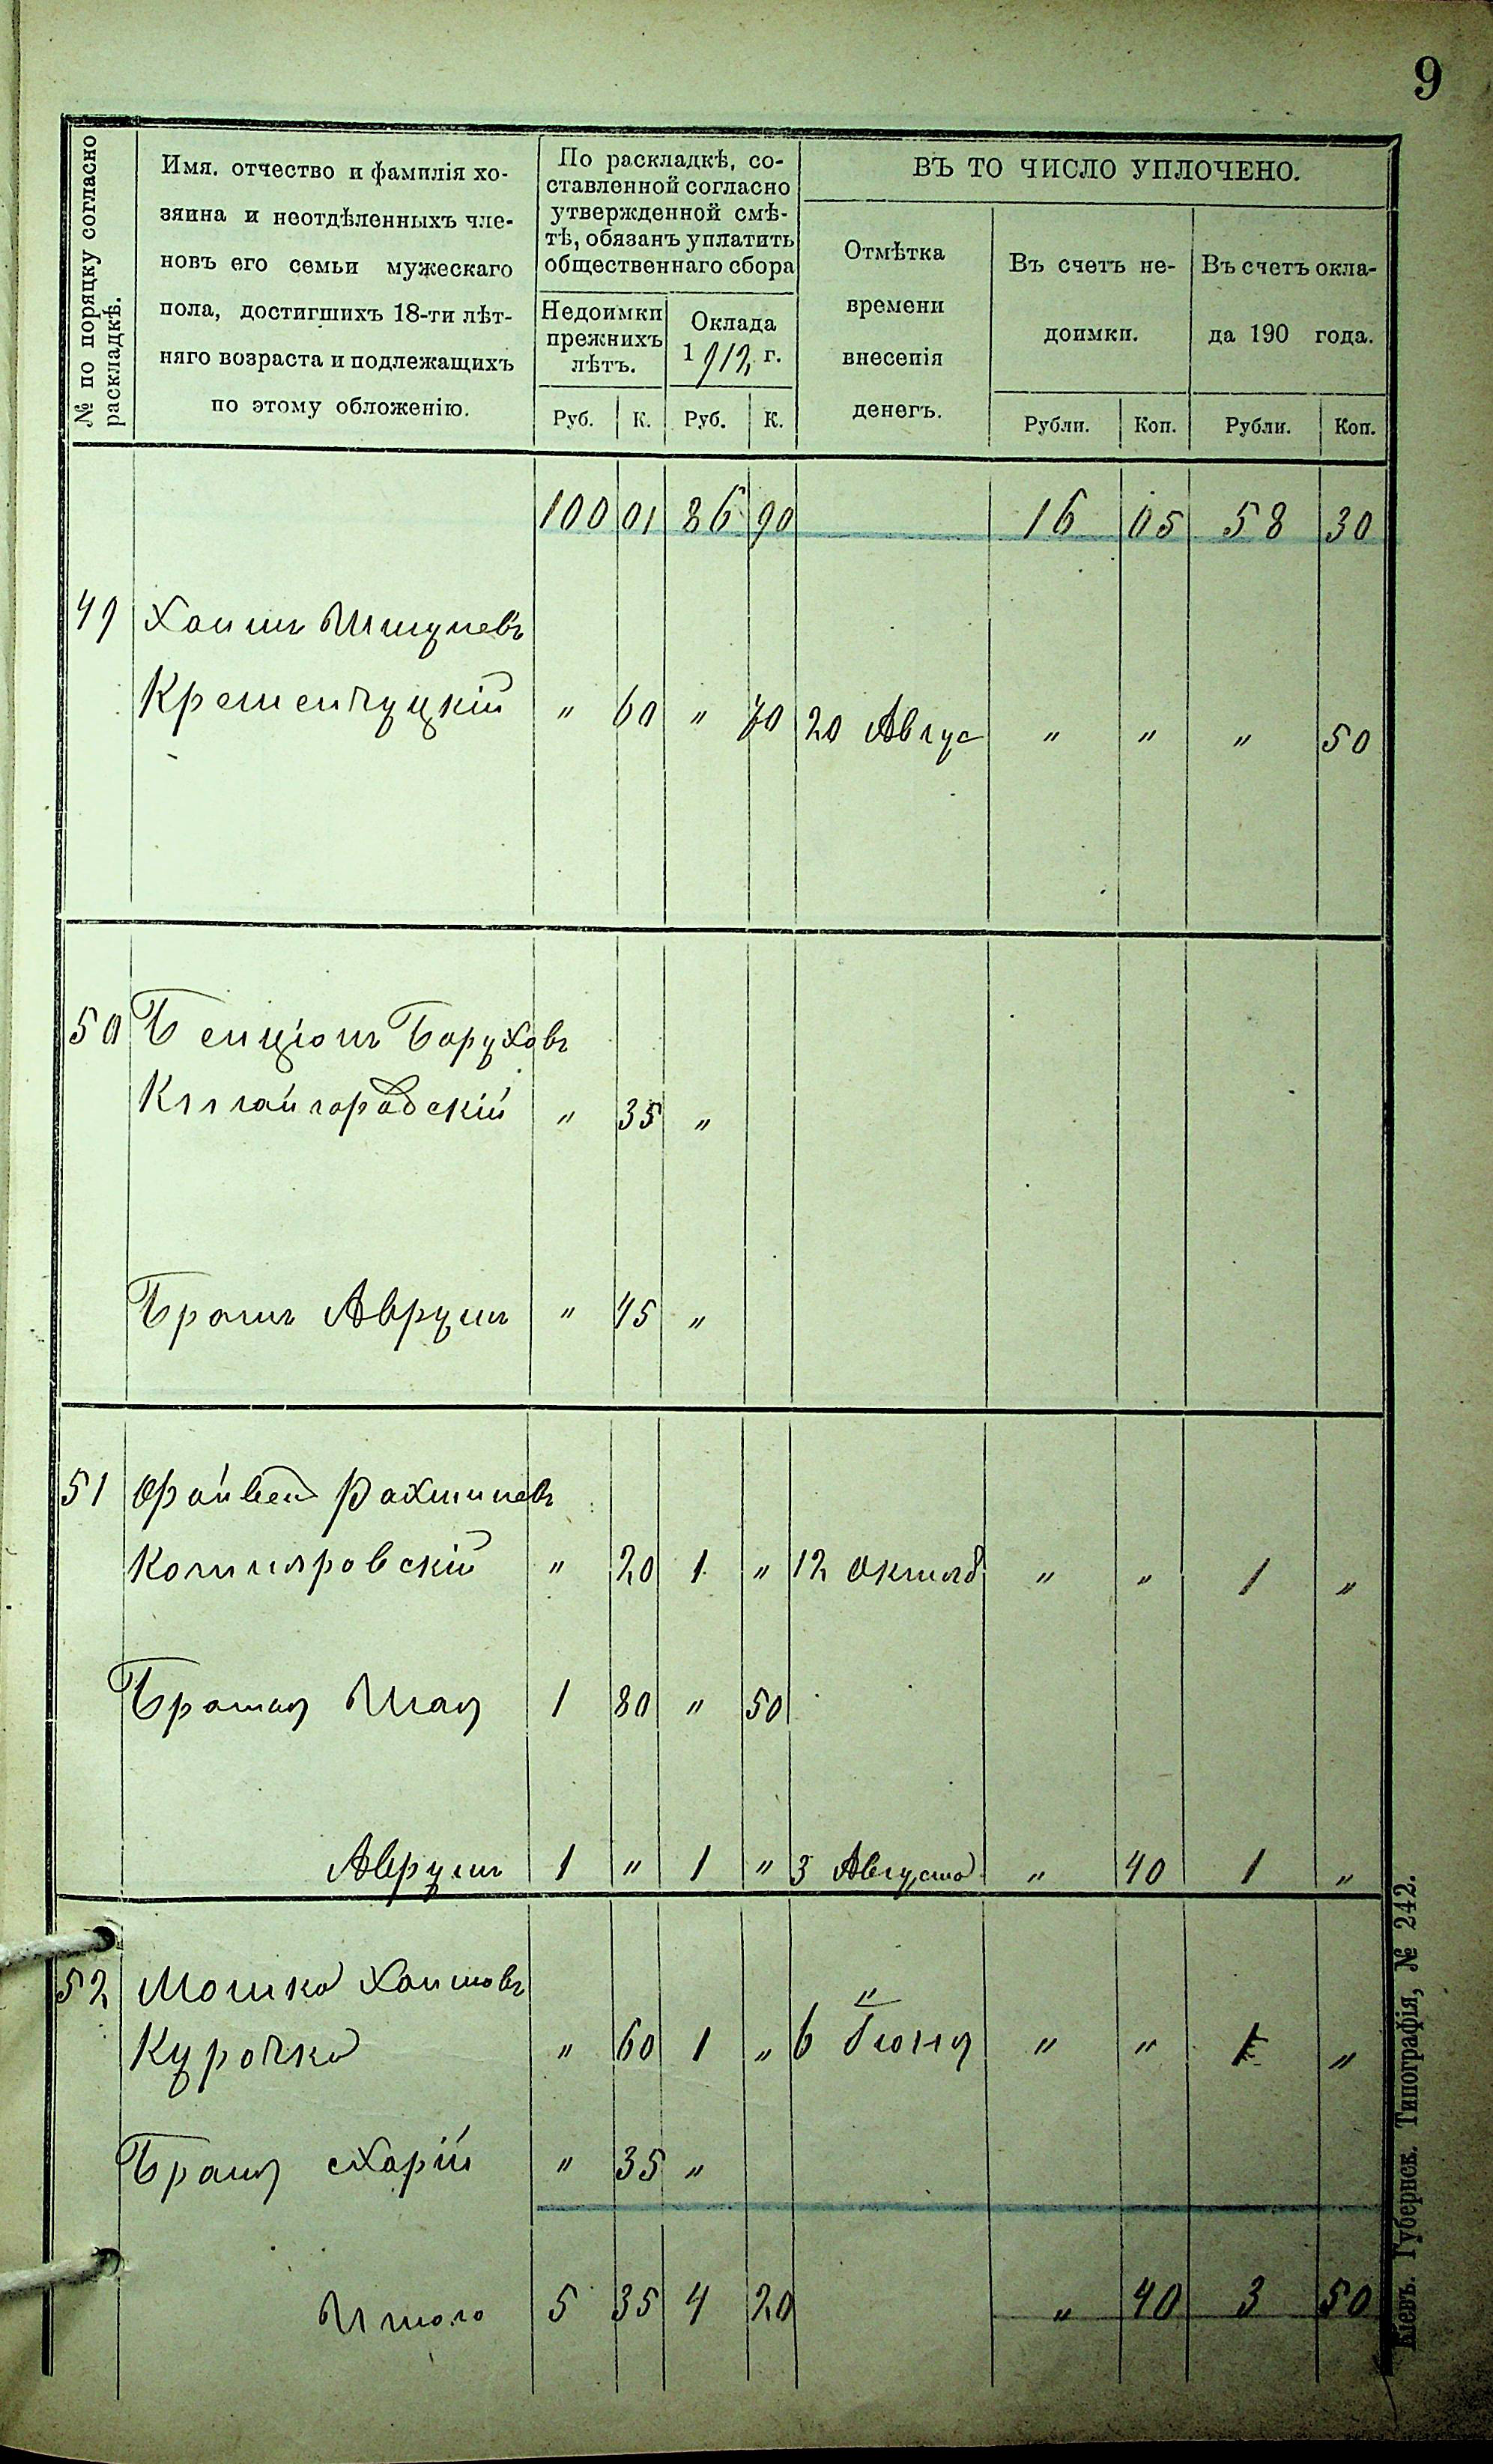 9
№ по поряцку согласно
раскладкѣ.
Имя, отчество и фамилія хо-
зяина и неотдѣленныхъ чле-
новъ его семьи мужескаго
пола, достигшихъ 18-ти лѣт-
няго возраста и подлежащихъ
по этому обложенію.
По раскладкѣ, со-
ставленной согласно
утвержденной смѣ-
тѣ, обязанъ уплатить
общественнаго сбора
Недоимки
прежнихъ
лѣтъ.
Оклада
1912 г.
Руб. К. Руб. К.
ВЪ ТО ЧИСЛО УПЛОЧЕНО.
Отмѣтка
времени
внесенія
денегъ.
Въ счетъ не-
доимки.
Въ счетъ окла-
да 190 года.
Рубли. Коп. Рубли. Коп.
100 01 86 90 16 05 58 30
49 Хаимъ
Кременчуцкій " 60 " 70 20 Авгус " " " 50
50 Бенціонъ Боруховъ
" 35 "
Братъ Аврумъ " 45 "
51
" 20 1 " 12 Октяб " " 1 "
1 80 " 50
Аврумъ 1 " 1 " 3 Августа " 40 1 "
52 Мошко Хаимовъ
Курочка " 60 1 " 6 Іюня " " 1 "
" 35 "
Итого 5 35 4 20 " 40 3 50
Кіевъ. Губернск. Типографія, № 242.